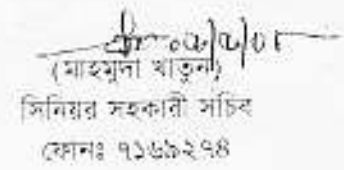 (মাহমুদা খাতুন)
সিনিয়র সহকারী সচিব
ফোনঃ ৭১৬৯২৭৪